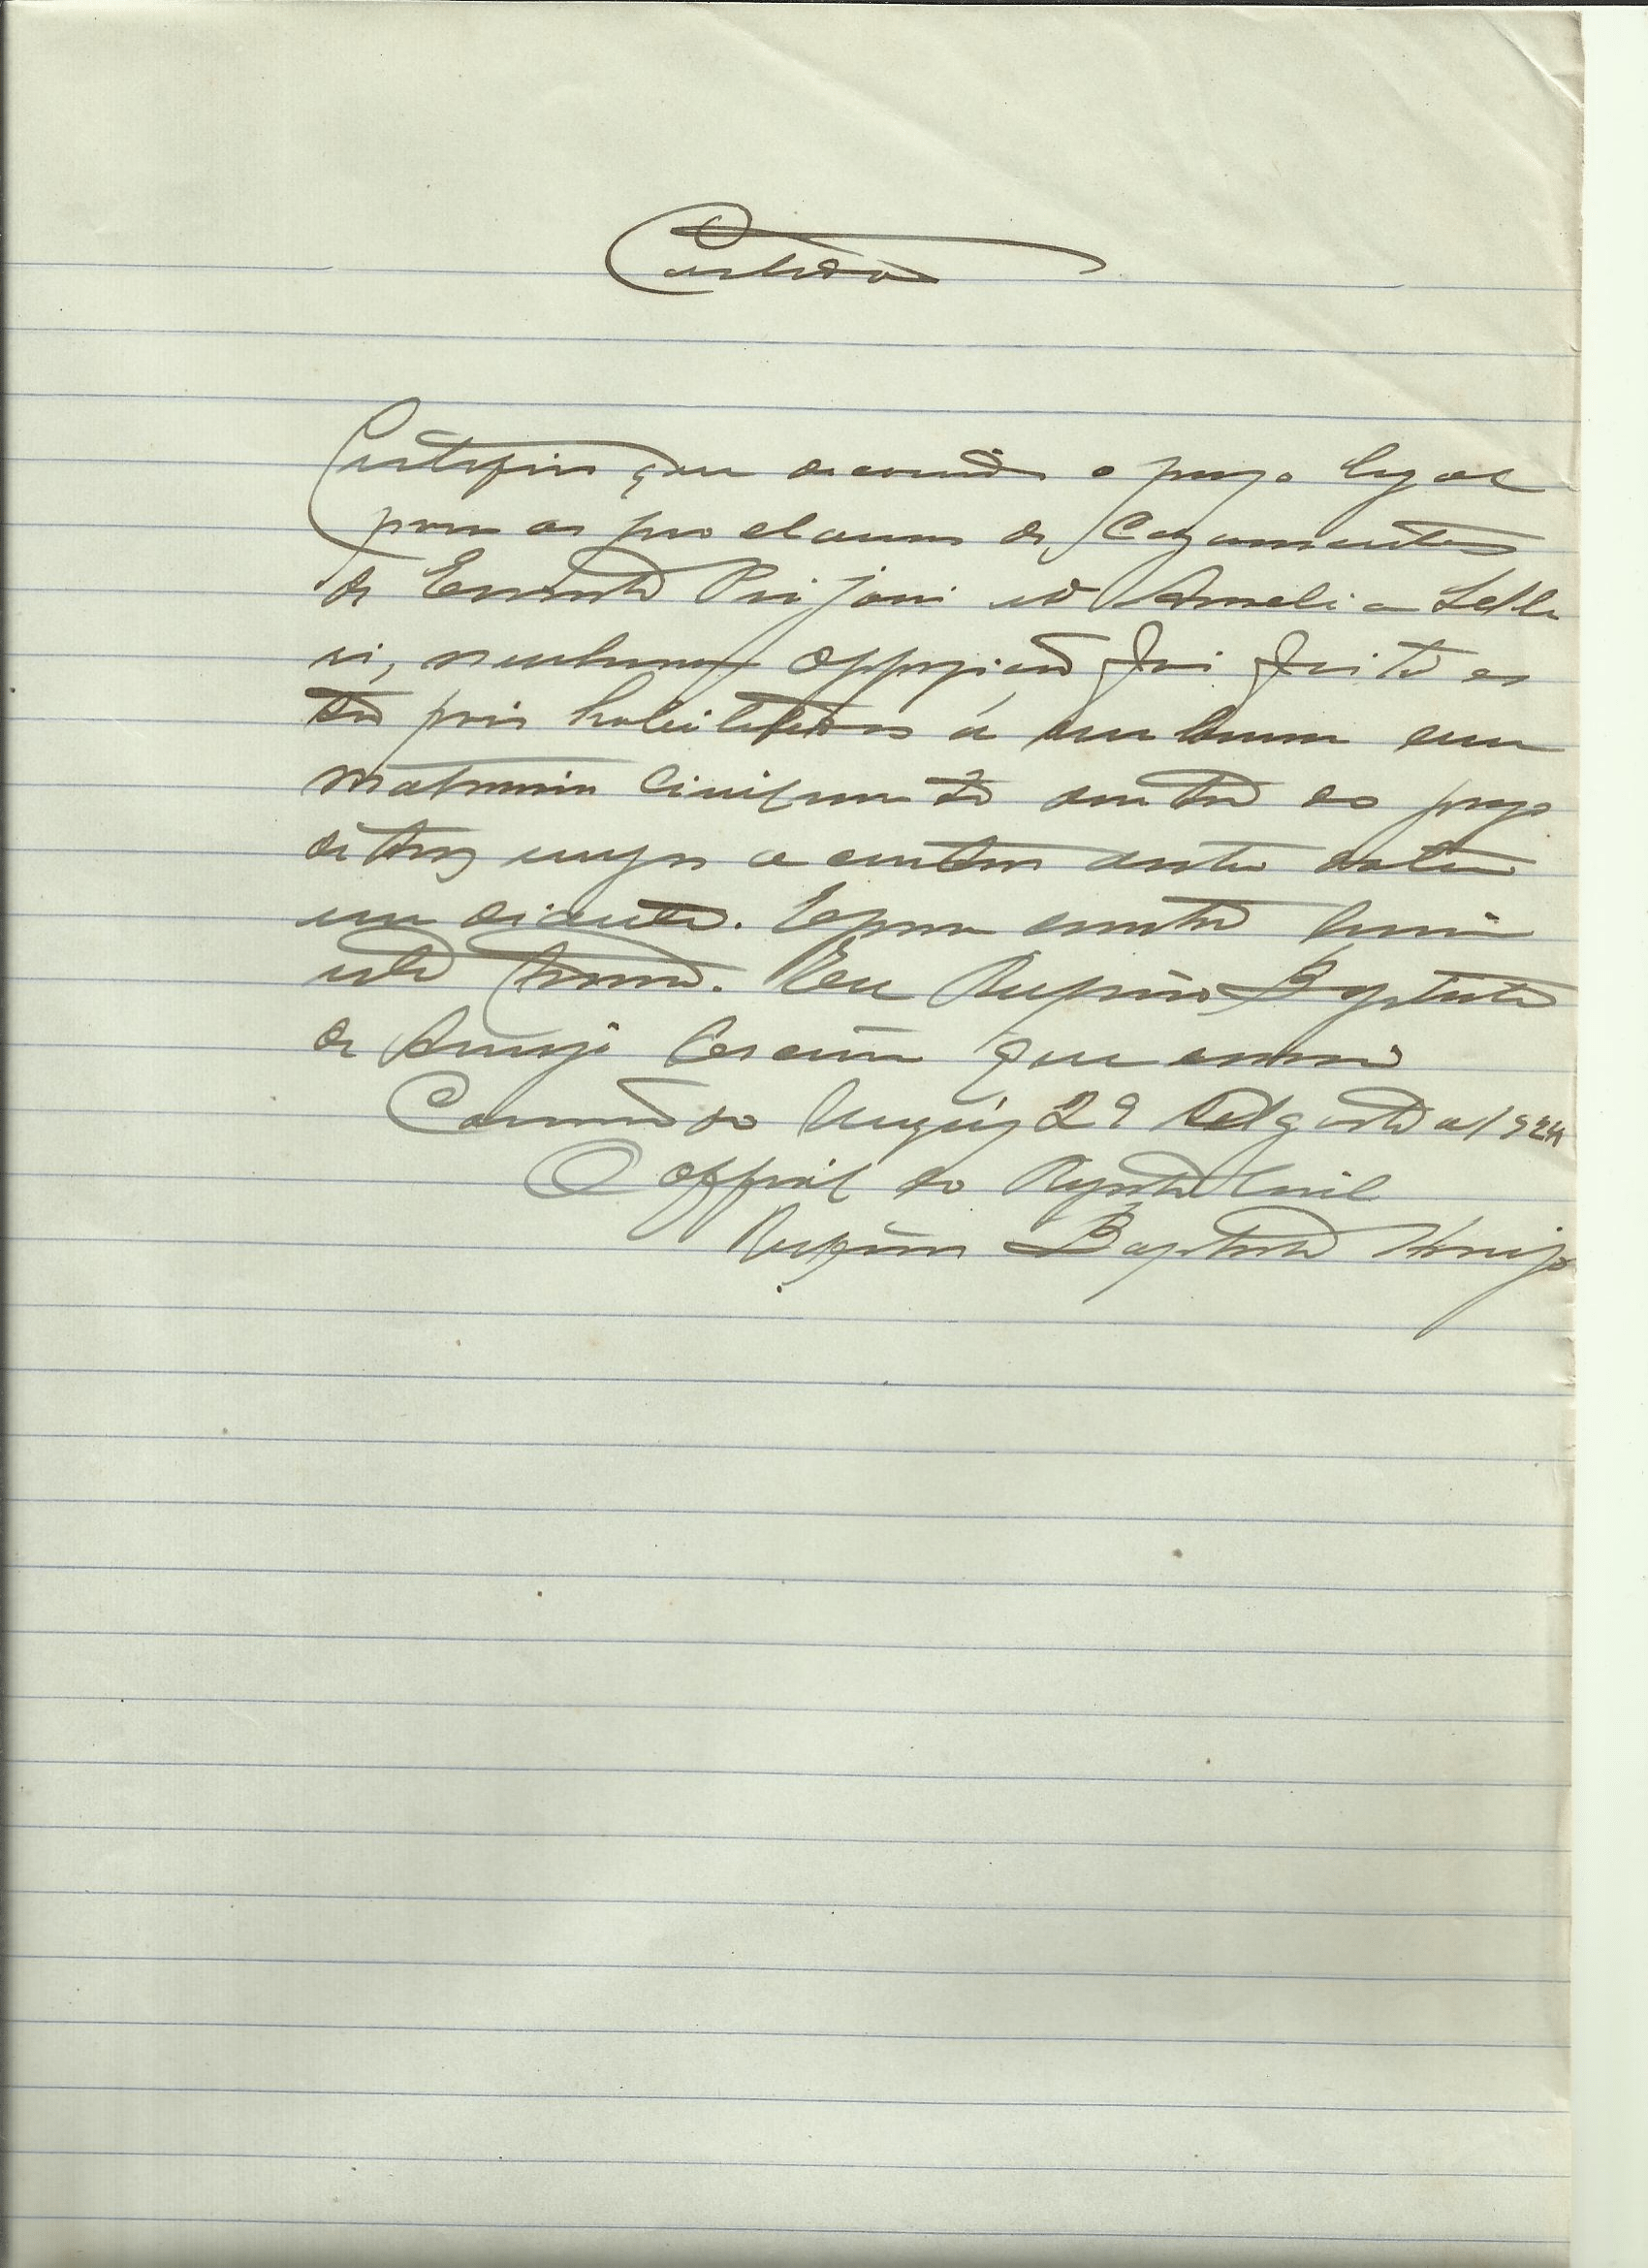 Certidão
Certifico que decorrido o prazo legal
para os proclamas de Cazamento
de Ernesto Pirjoni e D Amelia Selle
ri, nenhuma oppozição foi feita es
tão pois habilitados á
matrimonio Civilmente dentro do prazo
de trez mezes a contar desta data
em diante. E para constar lavrei
este termo. Eu Rufino Baptista
de Araujo Escrivão que escrevi
29 de Agosto de 1924
O Official do Registro Civil
Rufino Baptista Araujo